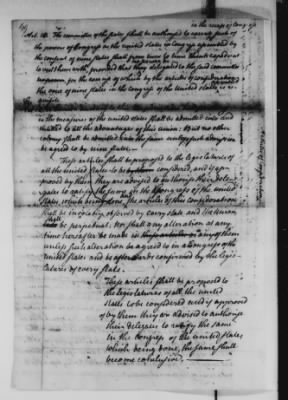 in the recess of Congress
Art. The Committee of the states shall be authorised to execute such of
the powers of Congress as the united states in Congress assembled by
the consent of nine states shall from time to time think expedient
to vest them with, provided that no power be delegated to the said committee
for the exercise of which by the articles of confederation
the voice of nine states in the Congress of the united states is re-
quisite
in the measures of the united states shall be admitted into and
entitled to all the advantages of this union: But no other
colony shall be admitted into the same unless such admission
be agreed to by nine states.
These articles shall be proposed to the legislatures of
all the united states to be considered, and if ap-
proved by them they are advised to authorise their dele-
gates to ratify the same in the Congress of the united
states, which being done, the articles of this confederation
shall be inviolably observed by every state and the union
shall be perpetual. Nor shall any alteration at any
time hereafter be made in any of them
unless such alteration be agreed to in a Congress of the
united states and be afterwards confirmed by the legis-
latures of every state.
These articles shall be proposed to
the legislatures of all the united
states to be considered and if approved
of by them they are advised to authorise
their delegates to ratify the same
in the Congress of the united states
which being done, the same shall
become conclusive